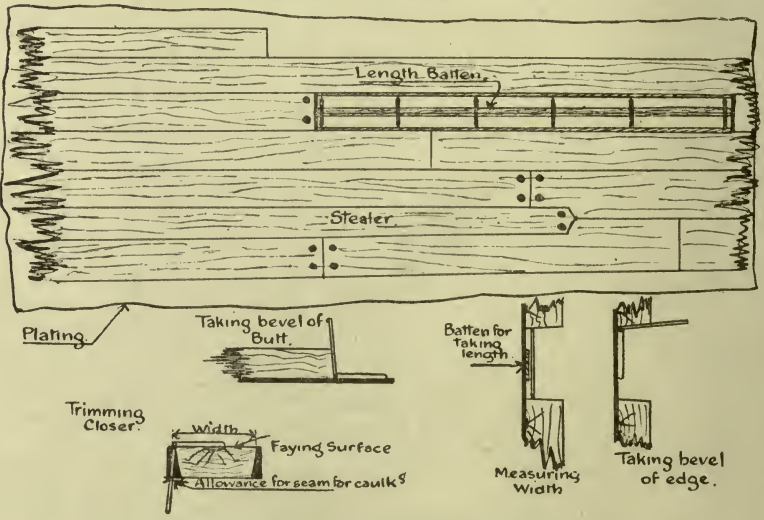 Length Batten.
Stealer.
Plating.
Taking bevel of
Butt.
Batten for
taking
length.
Trimming
Closer.
Width
Faying Surface
Allowance for seam for caulkg
Measuring
Width
Taking bevel
of edge.